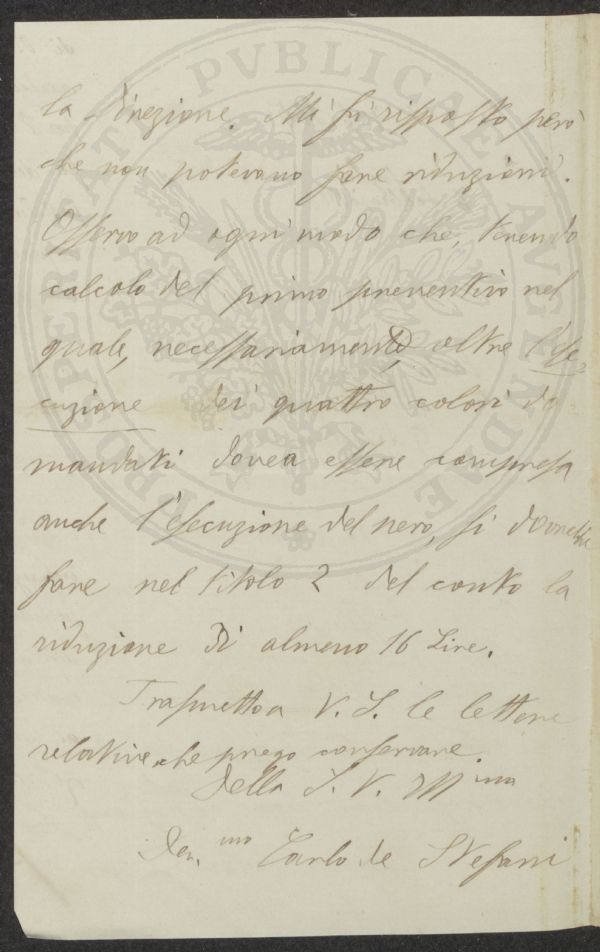 la Direzione. Mi fu risposto però
che non potevano fare riduzioni.
Osservo ad ogni modo che, tenendo
calcolo del primo preventivo nel
quale, necessariamente, oltre l'ese-
cuzione dei quattro colori do-
mandati dovea essere compresa
anche l'esecuzione del nero, si dovrebbe
fare nel titolo 2 del conto la
riduzione di almeno 16 Lire.
Trasmetto a V. S. le lettere
relative che prego conservare.
Della S. V. Ill.ma
Dev.mo Carlo de Stefani
PUBLICAE
AUGENDAE
PROSPERITATI